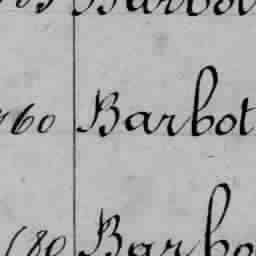 Barbot
60 Barbot
180 Barbo